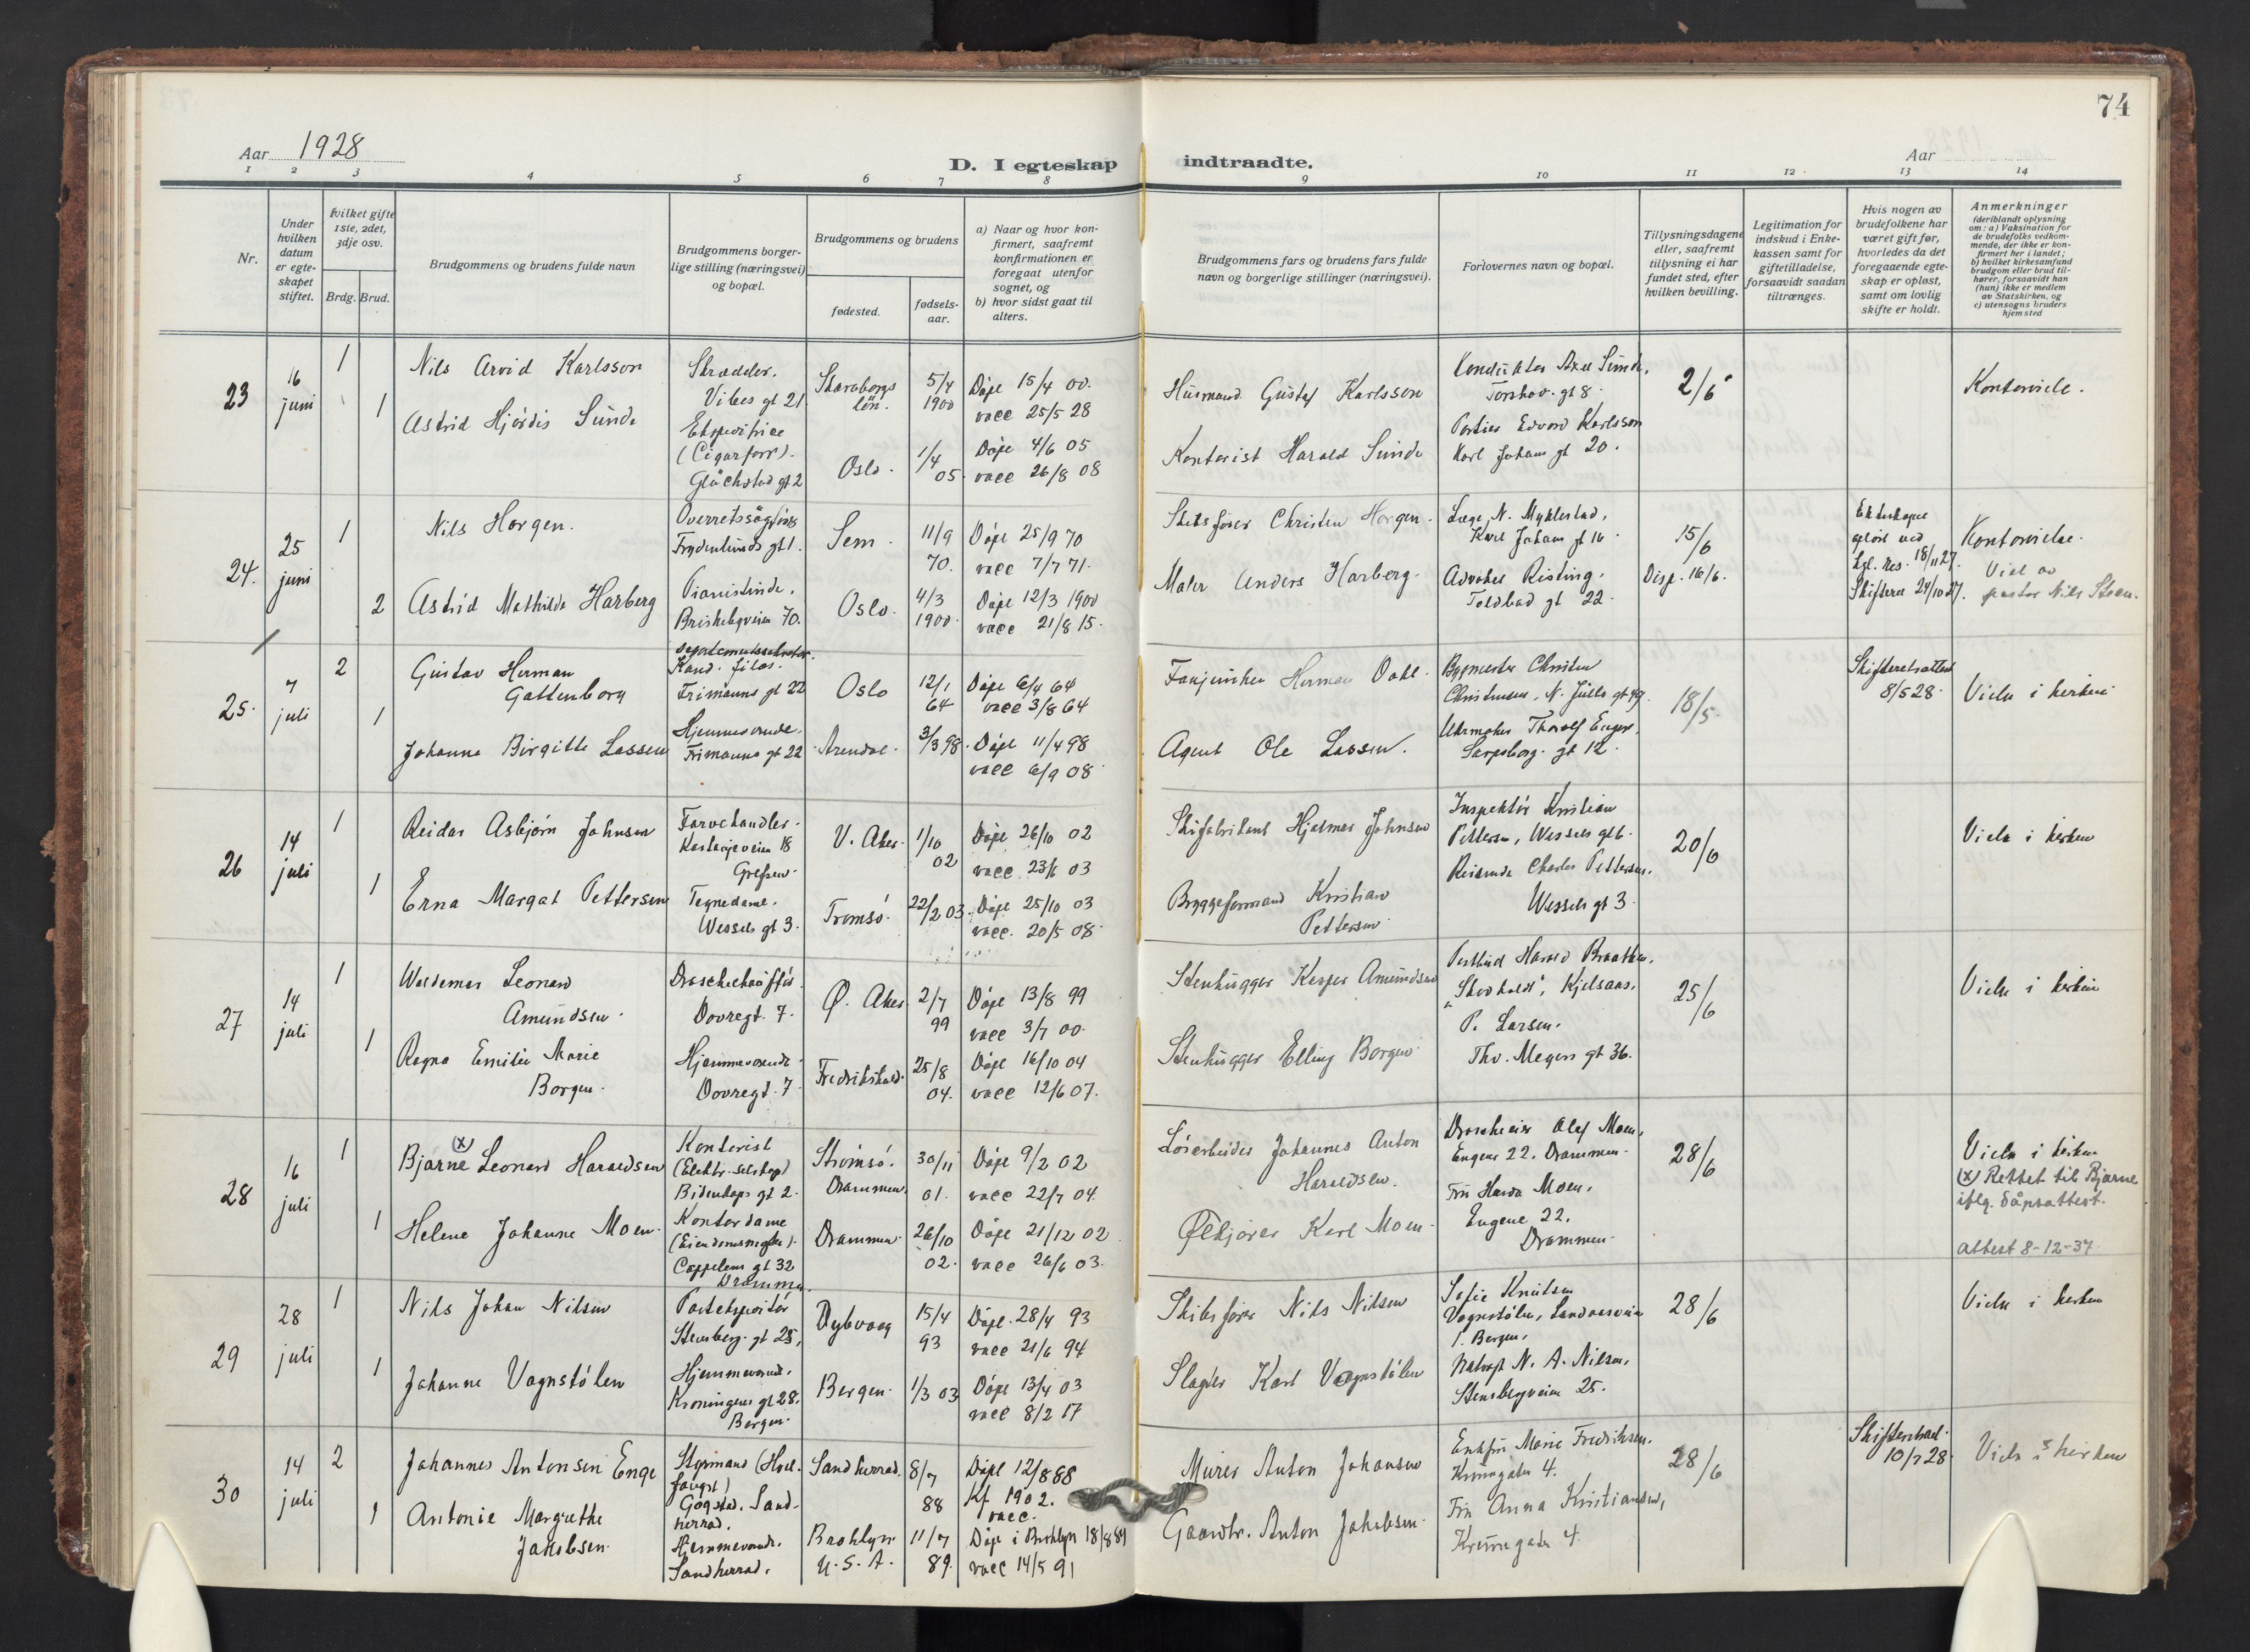 74
Aar 1928
D. I egteskap indtraadte.
Aar
1 2 3 4 5 6 7 8 9 10 11 12 13 14
Nr.
Under hvilken datum er egteskapet stiftet.
hvilket gifte 1ste, 2det, 3dje osv.
Brdg. Brud.
Brudgommens og brudens fulde navn
Brudgommens borgerlige stilling (næringsvei) og bopæl.
Brudgommens og brudens
fødested.
fødselsaar.
a) Naar og hvor konfirmert, saafremt konfirmationen er foregaat utenfor sognet, og
b) hvor sidst gaat til alters.
Brudgommens fars og brudens fars fulde navn og borgerlige stillinger (næringsvei).
Forlovernes navn og bopæl.
Tillysningsdagene eller, saafremt tillysning ei har fundet sted, efter hvilken bevilling.
Legitimation for indskud i Enkekassen samt for giftetilladelse, forsaavidt saadan tiltrænges.
Hvis nogen av brudefolkene har været gift før, hvorledes da det foregaaende egteskap er opløst, samt om lovlig skifte er holdt.
Anmerkninger
(deriblandt oplysning om: a) Vaksination for de brudefolks vedkommende, der ikke er konfirmert her i landet; b) hvilket kirkesamfund brudgom eller brud tilhører, forsaavidt han (hun) ikke er medlem av Statskirken, og c) utensogns bruders hjemsted
23
16 juni
1
Nils Arvid Karlsson
Skrædder.
Vibes gt 21
Skaraborgs län.
5/4 1900
Døpt 15/4 00.
vacc 25/5 28
Husmand Gustaf Karlsson
Konduktør Axel Sunde,
Torshov. gt 8.
2/6
Kontorvielse.
1
Astrid Hjördis Sunde
Ekspeditrice
(Cigarforr).
Glückstad gt 2
Oslo.
1/4 05.
Døpt 4/6 05
vacc 26/8 08
Kontorist Harald Sunde
Portier Edvard Karlsson
Karl Johans gt 20.
24.
25 juni
1
Nils Horgen.
Overretssagfører
Frydenlunds gt 1.
Sem
11/9 70.
Døpt 25/9 70
vacc 7/7 71.
Skibsfører Christen Horgen.
Læge N. Myklestad,
Karl Johans gt 16
15/6
Disp. 16/6.
Ekteskapet opløst ved
kgl. res. 18/11 27.
Skifteret 24/10 27.
Kontorvielse.
Viet av
pastor Nils Steen.
2
Astrid Mathilde Harberg
Pianistinde.
Briskebyveien 70.
Oslo.
4/3 1900.
Døpt 12/3 1900
vacc 21/8 15.
Maler Anders Harberg.
Advokat Risting.
Toldbod gt 22.
25.
7 juli
2
Gustav Herman
Gattenborg
departementssekretær.
Kand. filos.
Frimanns gt 22
Oslo
12/1 64
Døpt 6/4 64
vacc 3/8 64
Fanejunker Herman Dahl.
Bygmester Christen
Christensen, N. Juels gt 49.
18/5.
Skifteretsattest
8/5 28.
Vielse i kirken
1
Johanne Birgitte Lassen
Hjemmeværende.
Frimanns gt 22
Arendal.
3/3 98.
Døpt 11/4 98
vacc 6/9 08
Agent Ole Lassen.
Uhrmaker Thorolf Enger,
Sarpsborg. gt 12.
26
14 juli
1
Reidar Asbjørn Johnsen
Farvehandler.
Kastanjeveien 18
Grefsen.
V. Aker.
1/10 02
Døpt 26/10 02
vacc 23/6 03
Skifabrikant Hjalmar Johnsen
Inspektør Kristian
Pettersen, Wessels gt 6.
20/6
Vielse i kirken
1
Erna Margat Pettersen
Tegnedame.
Wessels gt 3.
Tromsø.
22/2 03.
Døpt 25/10 03
vacc. 20/5 08.
Byggeformand Kristian
Pettersen.
Reisende Charles Pettersen.
Wessels gt 3.
27
14 juli
1
Waldemar Leonard
Amundsen.
Droschechauffør.
Dovregt. 7.
Ø. Aker
2/7 99
Døpt 13/8 99
vacc 3/7 00.
Stenhugger Kasper Amundsen
Postbud Harald Braathen.
"Skodholdt", Kjelsaas.
25/6
Vielse i kirken
1
Ragna Emilie Marie
Borgen.
Hjemmeværende
Dovregt. 7
Fredrikstad.
25/8 04.
Døpt 16/10 04
vacc 12/6 07.
Stenhugger Elling Borgen
P. Larsen.
Thv. Meyers gt 36.
28
16 juli
1
(x)
Bjarne Leonard Haraldsen
Kontorist
(Elektr. selskap)
Bidenkaps gt 2.
Strømsø.
Drammen.
30/11 01.
Døpt 9/2 02
vacc 22/7 04.
Løsarbeider Johannes Anton
Haraldsen.
Droscheeier Olaf Moen,
Engene 22. Drammen.
28/6
Vielse i kirken
(x) Rettet til Bjarne
iflg. dåpsattest.
attest 8-12-37.
1
Helene Johanne Moen.
Kontordame
(Eiendomsmegler).
Cappelens gt 32
Drammen.
Drammen.
26/10 02.
Døpt 21/12 02
vacc 26/6 03.
Ølkjører Karl Moen.
Fru Harda Moen,
Engene 22.
Drammen.
29
28 juli
1
Nils Johan Nilsen
Postekspeditør
Stensberg. gt 25,
Dybvaag
15/4 93
Døpt. 28/4 93
vacc 21/6 94
Skibsfører Nils Nilsen
Sofie Knutsen
Vognstølen, Landaasveien
1. Bergen,
28/6
Vielse i kirken
1
Johanne Vognstølen
Hjemmeværende.
Kroningens gt 28.
Bergen.
Bergen.
1/3 03
Døpt 13/4 03
vacc 8/2 17
Slagter Karl Vognstølen
N. A. Nilsen,
Stensbergveien 25.
30
14 juli
2
Johannes Antonsen Enge
Styrmand (Hval.
fangst)
Gogstad. Sand-
herred.
Sandherred.
8/7 88
Døpt 12/8 88
Kf 1902.
vacc.
Murer Anton Johansen
Enkefru Marie Fredriksen.
4.
28/6
10/7 28.
Vielse i kirken
1
Antonie Margrethe
Jakobsen.
Hjemmeværende.
Sandherred.
Brooklyn
U. S. A.
11/7 89.
Døpt i Brooklyn 18/8 89
vacc 14/5 91
Gaardbr. Anton Jakobsen.
Fru Anna Kristiansen,
4.